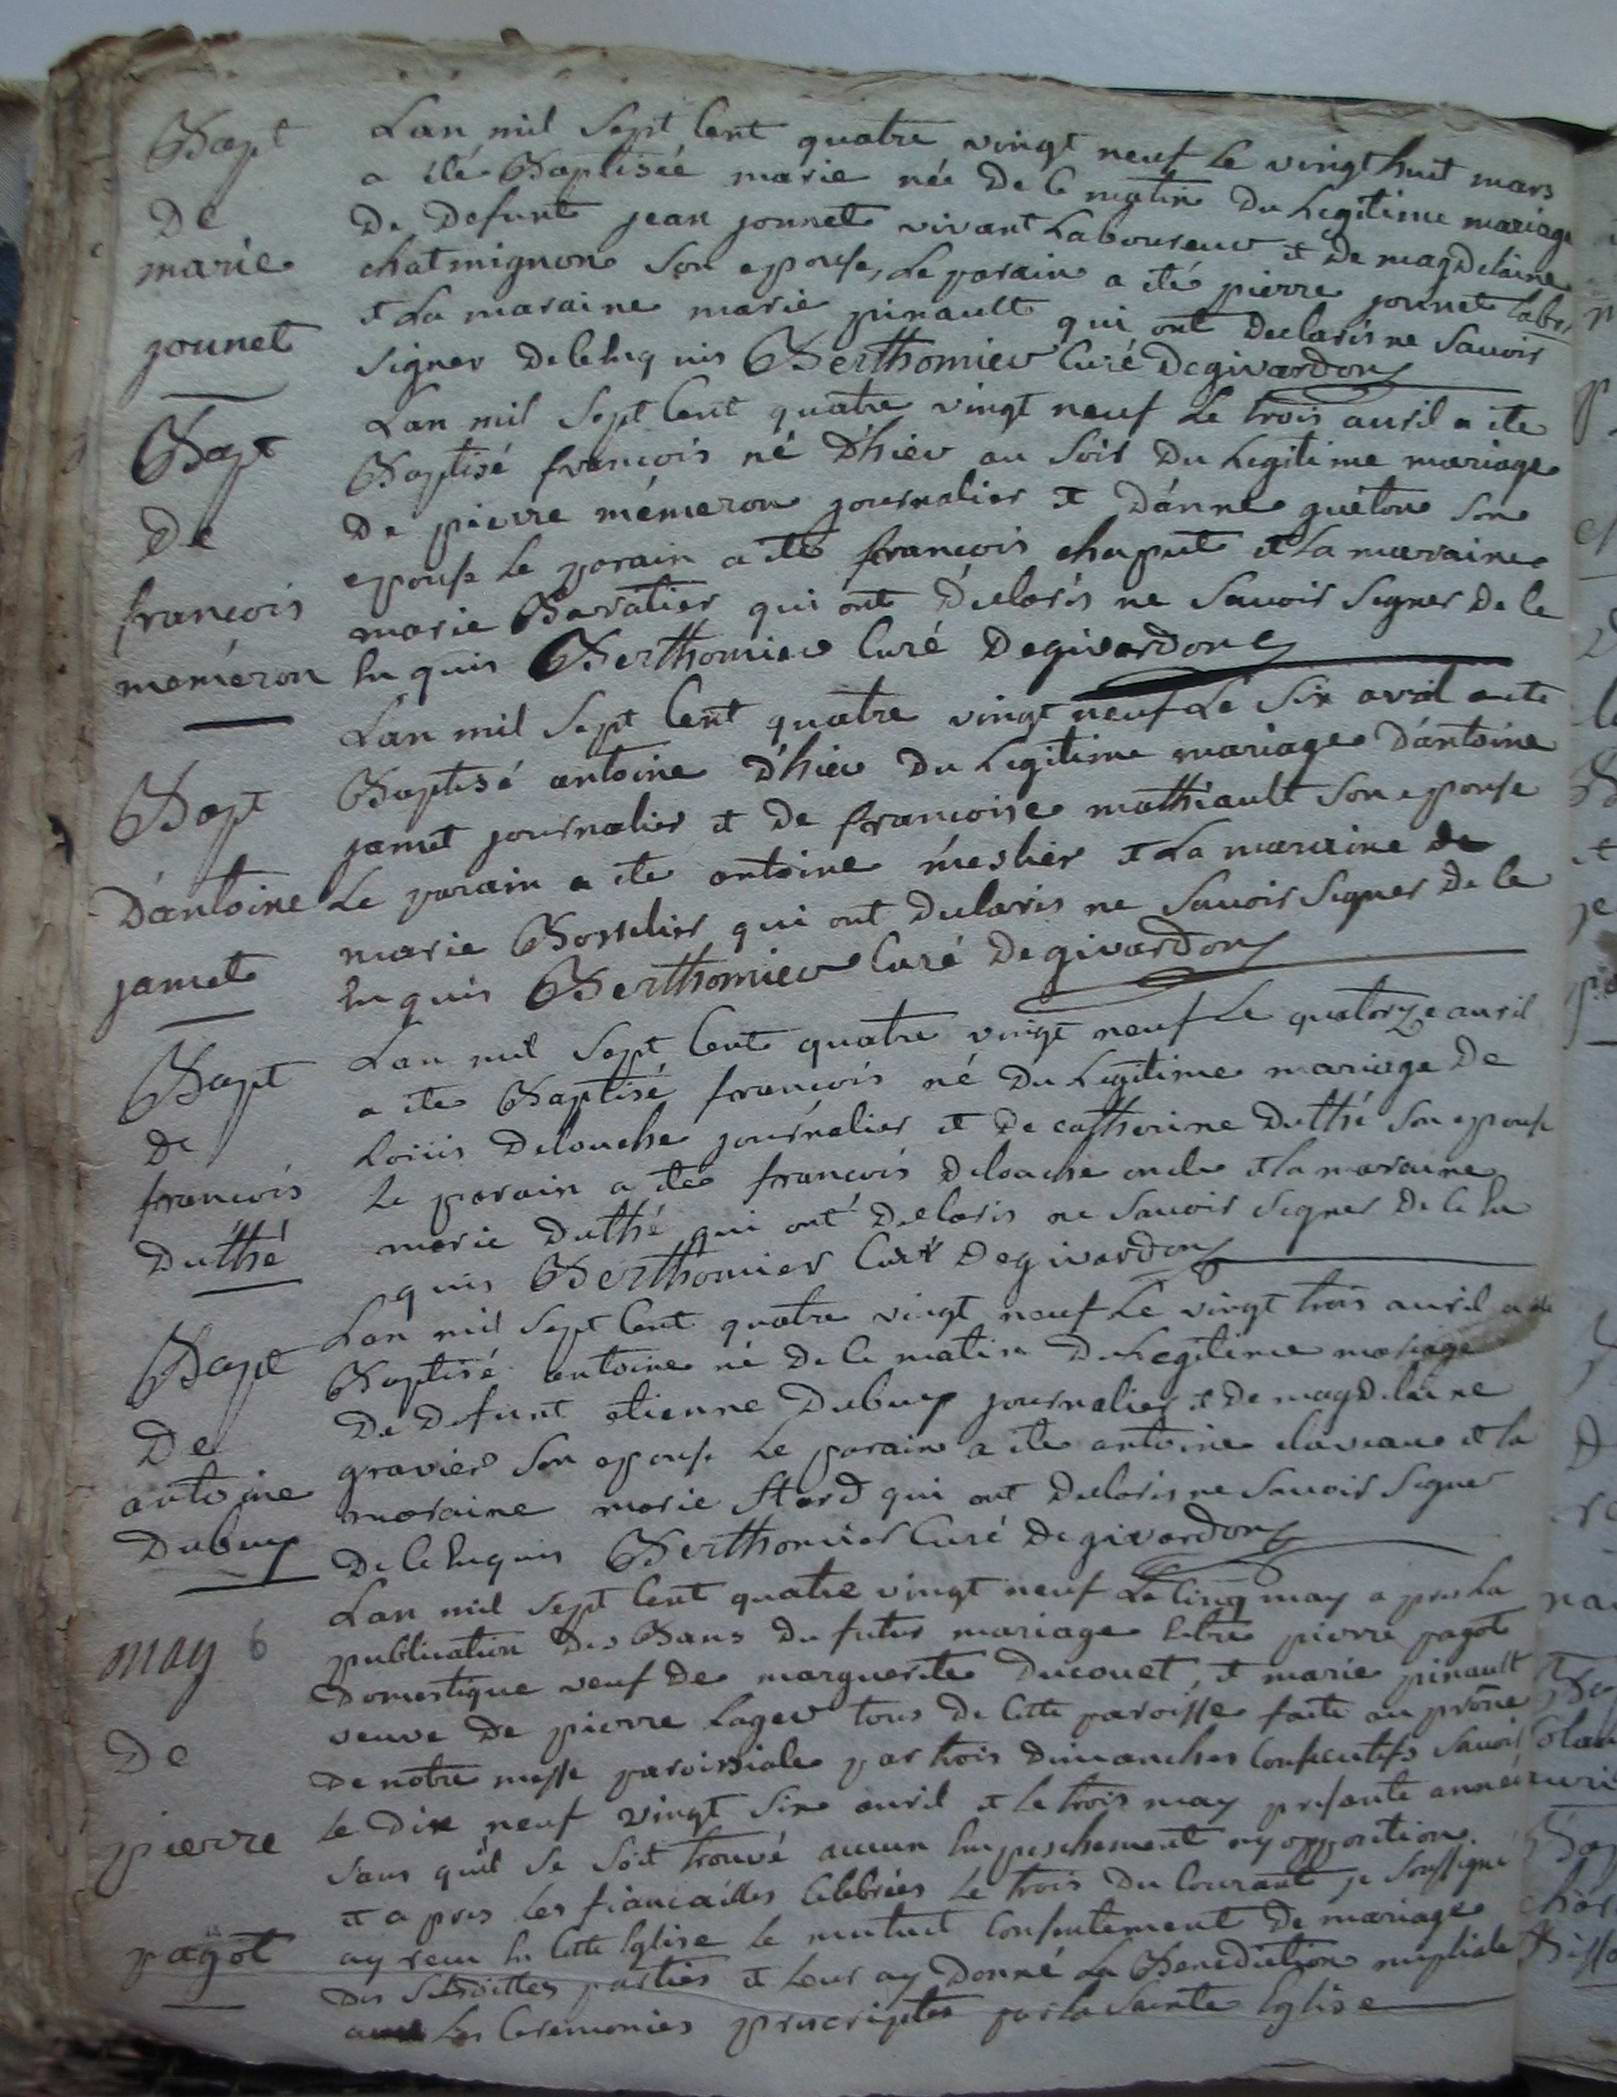 Bapt
De
marie
jounet
Lan mil Sept Cent quatre vingt neuf Le vingt huit mars
a été Baptisée marie née De Ce matin Du Legitime mariage
De Defunt jean jonnet vivant Laboureur et De magdelaine
chatmignon son epouse, Le parain a été pierre jounet labr
et La maraine marie pinault qui ont Declaris ne Savoir
signer De Ce Enquis Berthomier Curé Degivardon
Bapt
De
francois
meméron
Lan mil Sept Cent quatre vingt neuf Le trois avril a ete
Baptisé francois né D'hier au Soir Du Legitime mariage
De pierre mémeron journalier et D'anne guéton Son
epouse Le parain a ete francois chaput et La maraine
marie Baratier qui ont Déclarés ne Savoir Signer De Ce
Enquis Berthomier Curé Degivardon
Bapt
D'antoine
jamet
Lan mil Sept Cent quatre vingt neuf Le Six avril a ete
Baptisé antoine D'hier Du Legitime mariage D'antoine
jamet journalier et De francoise mathiault Son epouse
Le parain a ete antoine meslier et La maraine
marie Bosselier qui ont Declaris ne Savoir Signer De Ce
Enquis Berthomier Curé Degivardon
Bapt
De
francois
Duthé
Lan mil Sept Cent quatre vingt neuf Le quatorze avril
a ete Baptisé francois né Du Legitime mariage De
Loüis Delouche journalier et De catherine Duthé Son epouse
Le parain a ete francois Delouche oncle et La maraine
marie Duthé qui ont Declaris ne Savoir Signer De Ce En
quis Berthomier Curé Degivardon
Bapt
De
antoine
Dubuy
Lan mil Sept Cent quatre vingt neuf Le vingt trois avril a ete
Baptisé antoine né De Ce matin Du Legitime mariage
De Defunt etienne Dubuy journalier et De magdelaine
gravier Son epouse Le parain a ete antoine claveau et La
maraine marie Hard qui ont Declaris ne Savoir Signer
De Ce Enquis Berthomier Curé Degivardon
may 6
De
pierre
pagot
Lan mil Sept Cent quatre vingt neuf Le Cinq may apres La
publication Des Bans Du futur mariage Entre pierre pagot
Domestique veuf De marguerite Ducouet, et marie pinault
veuve De pierre Lager tous De Cette paroisse faite au prône
De notre messe paroissiale par trois Dimanches Consecutifs Savoir
Le Dix neuf vingt Six avril et Le trois may presente année
Sans quil Se Soit trouvé aucun Empeschement ny opposition
et apres Les fiancailles Celebrées Le trois Du Courant je Soussigné
ay recu En Cette Eglise Le mutuel Consentement De mariage
Des Susdittes parties et Leur ay Donné La Benediction nuptiale
avec Les Ceremonies prescriptes par La Sainte Eglise